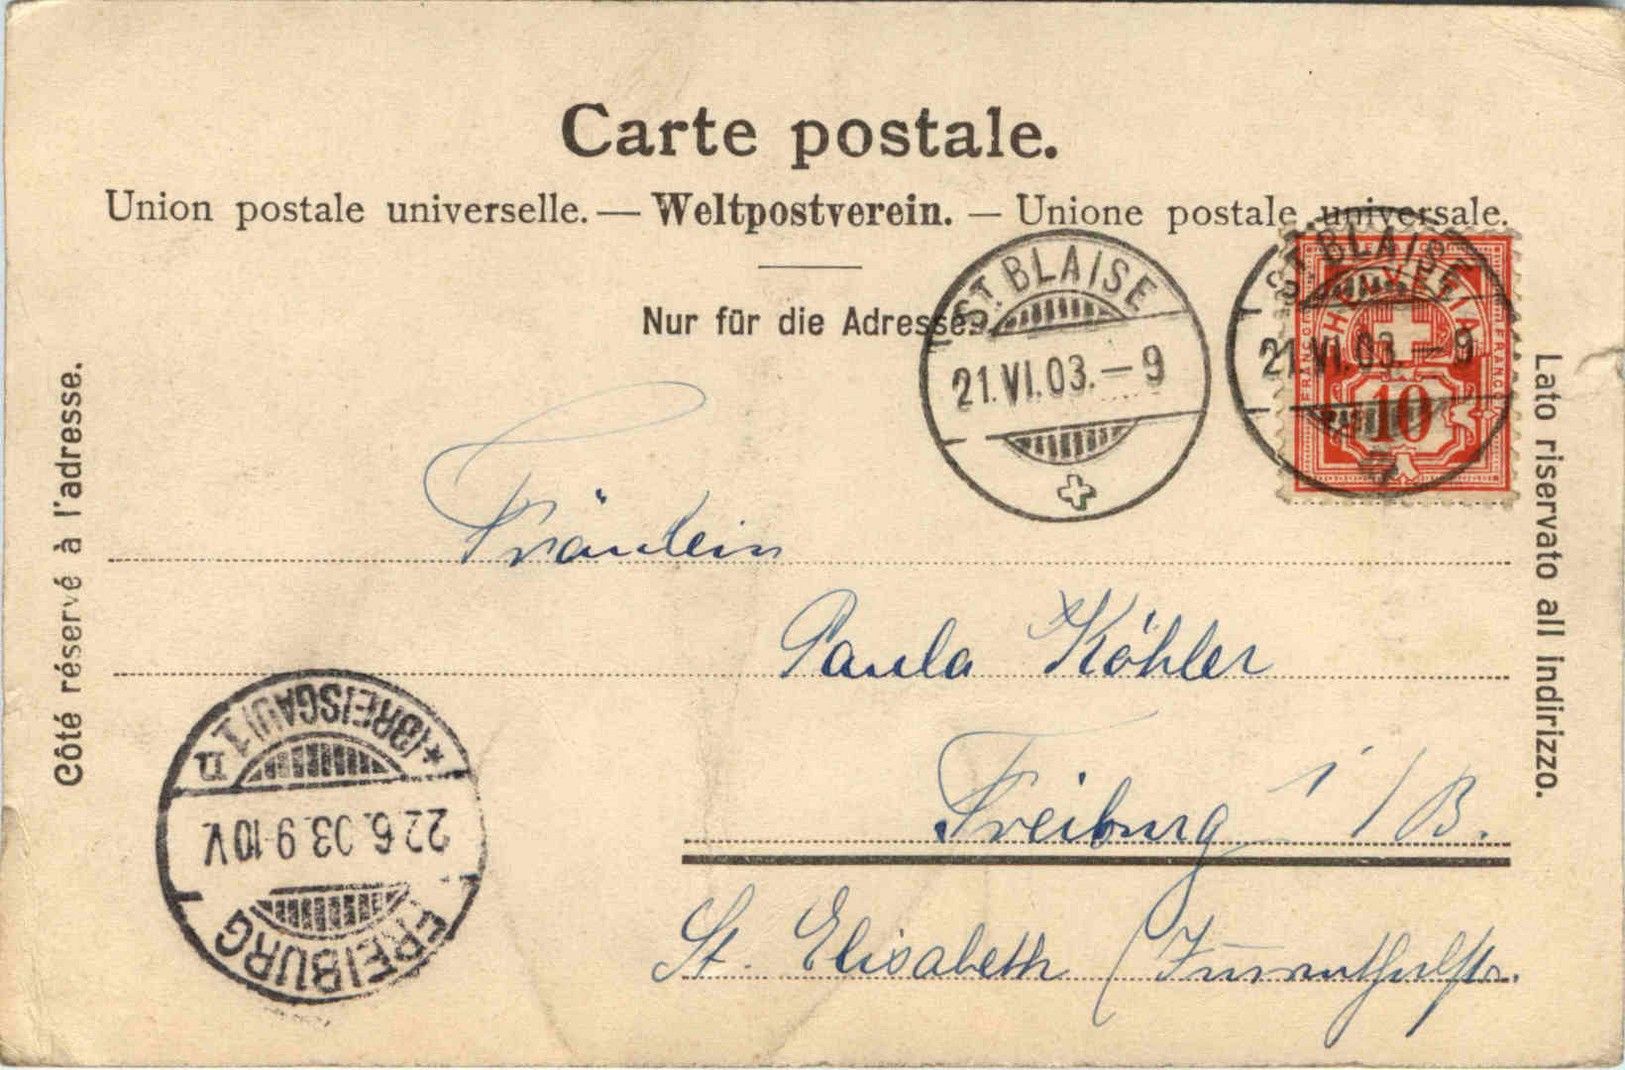 Carte postale.
Union postale universelle. — Weltpostverein. — Unione postale universale.
Nur für die Adresse.
Côté réservé à l'adresse.
Lato riservato all indirizzo.
ST. BLAISE
21.VI.03.–9
ST. BLAISE
21.VI.03.–9
HELVETIA
FRANCO
FRANCO
10
Fräulein
Paula Köhler
Freiburg i/B.
St. Elisabeth (
FREIBURG
22.6.03.9-10V.
*(BREISGAU)1